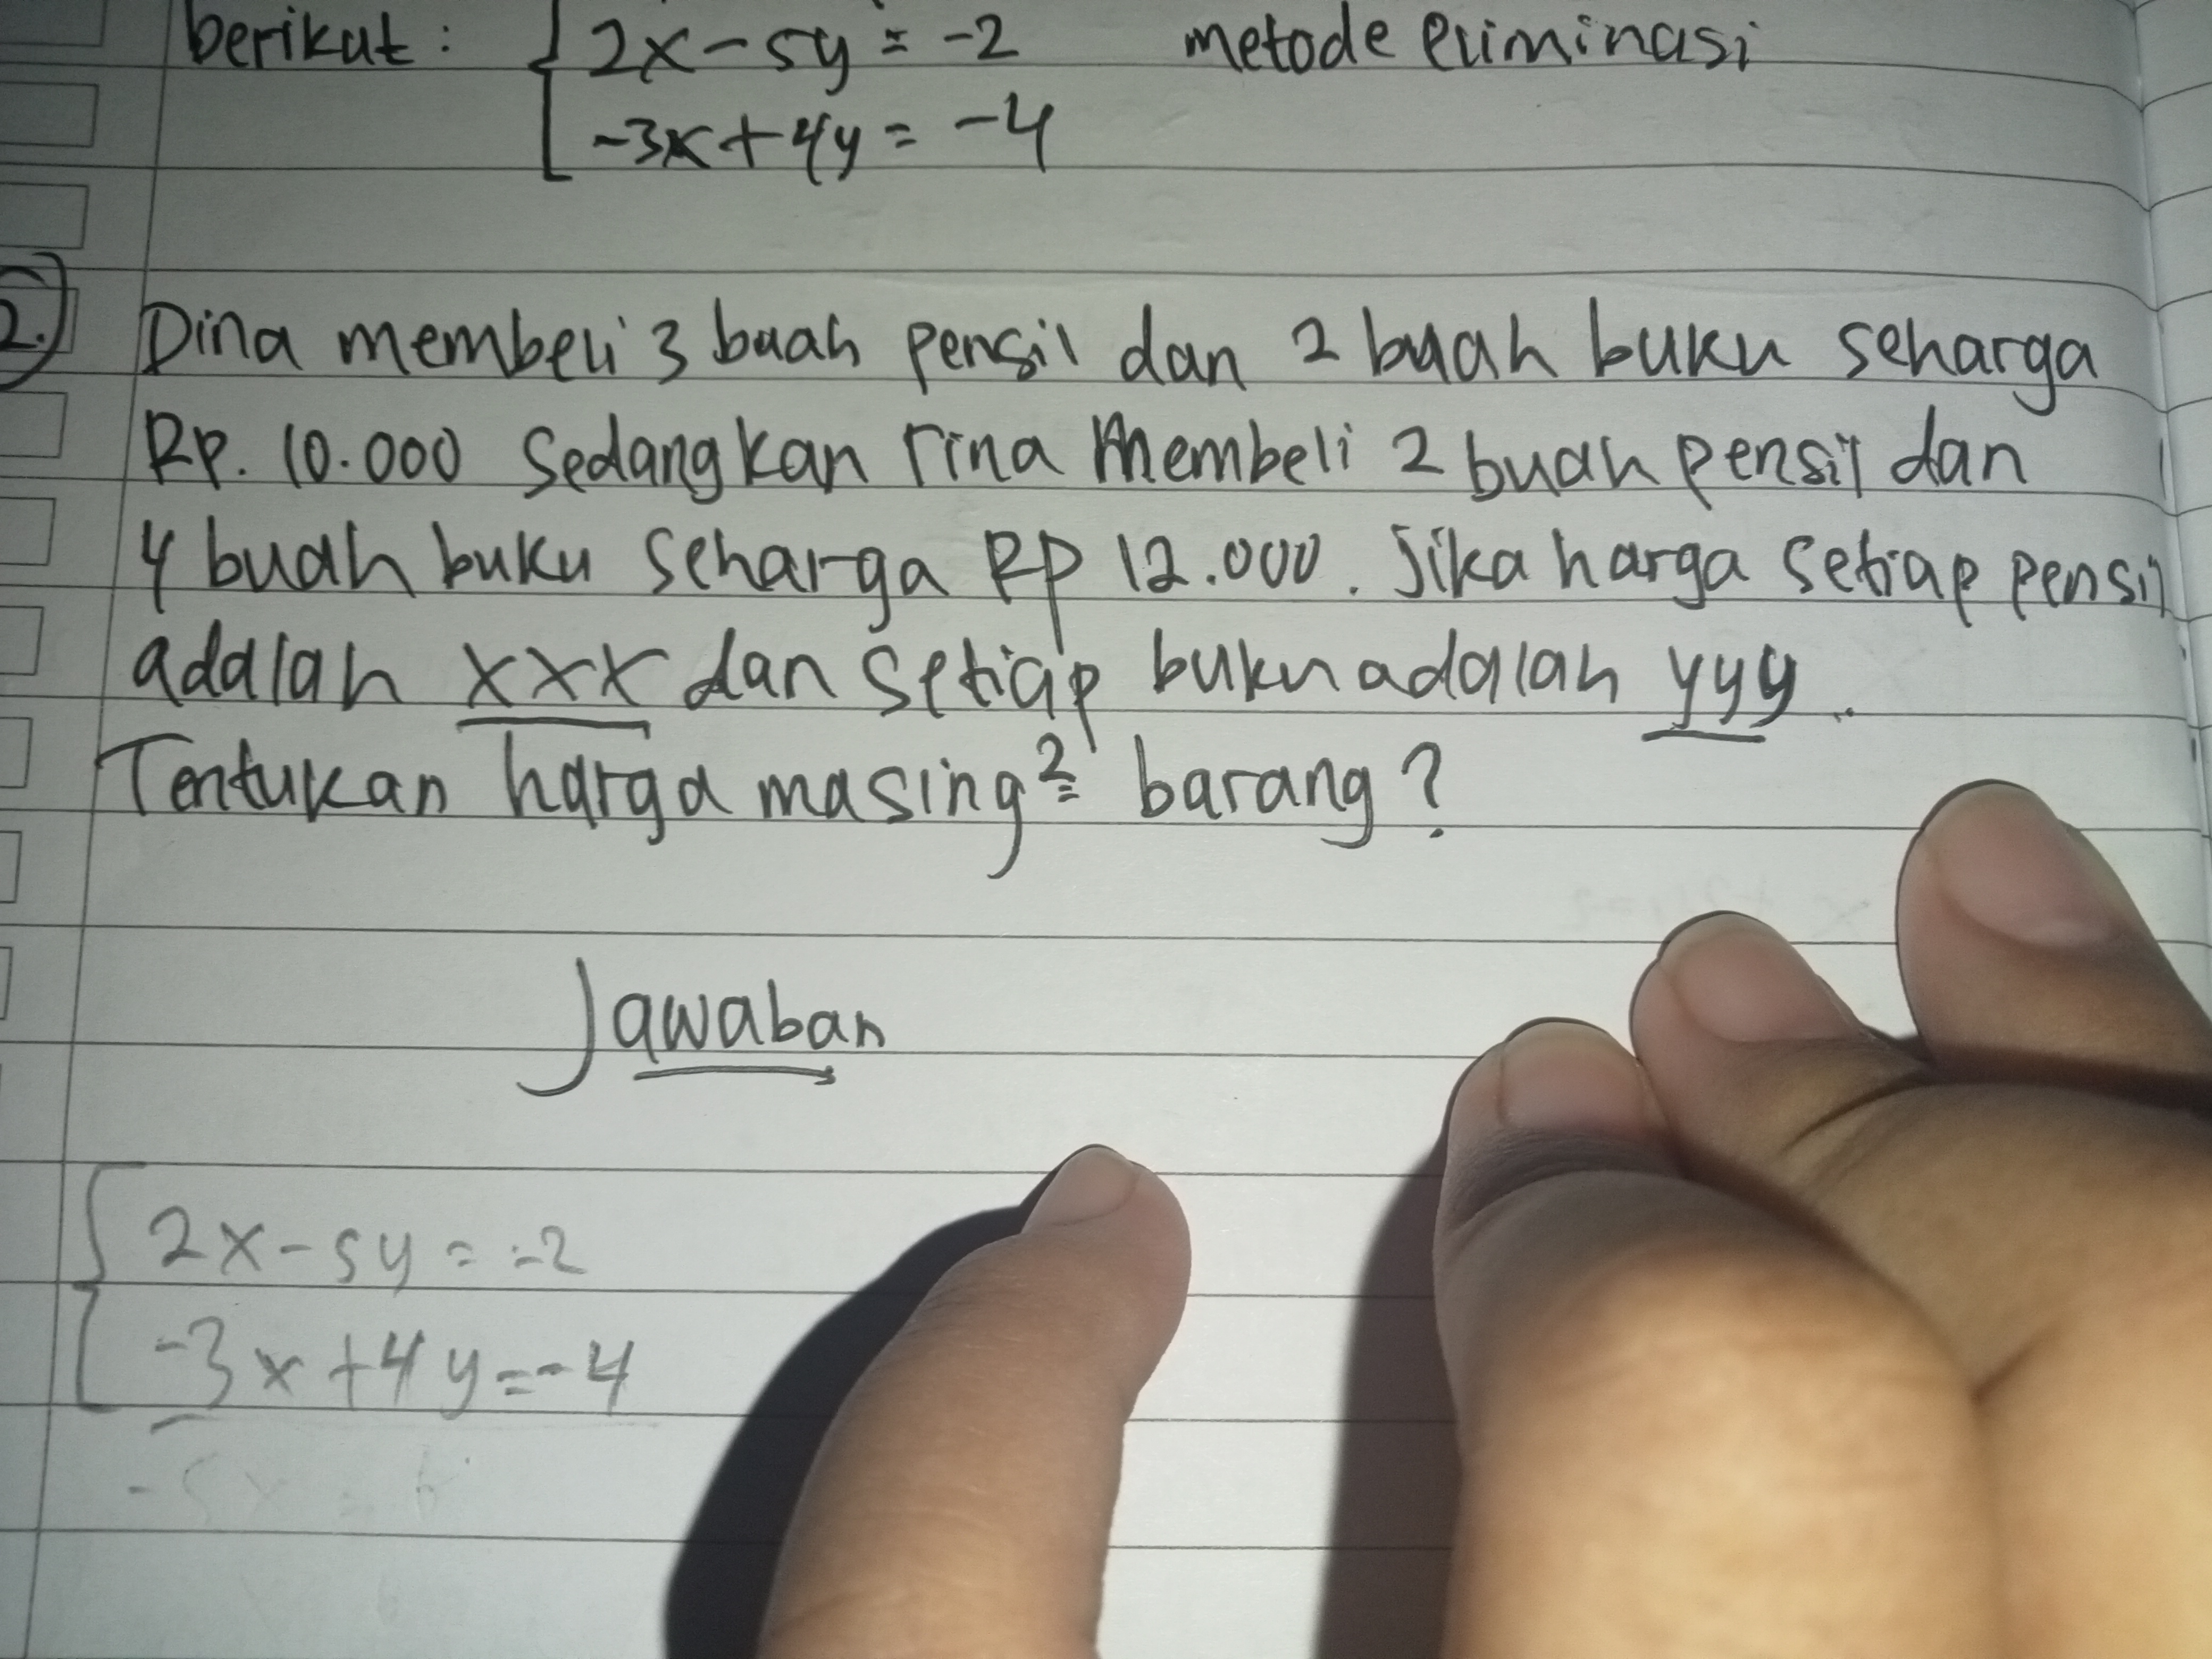 berikut : { 2x - 5y = -2 metode eliminasi
-3x + 4y = -4
2.) Dina membeli 3 buah pensil dan 2 buah buku seharga
Rp. 10.000 sedangkan rina membeli 2 buah pensil dan
4 buah buku seharga Rp 12.000. Jika harga setiap pensil
adalah xxx dan setiap buku adalah yyy..
Tentukan harga masing² barang?
Jawaban
{ 2x - 5y = -2
-3x + 4y = -4